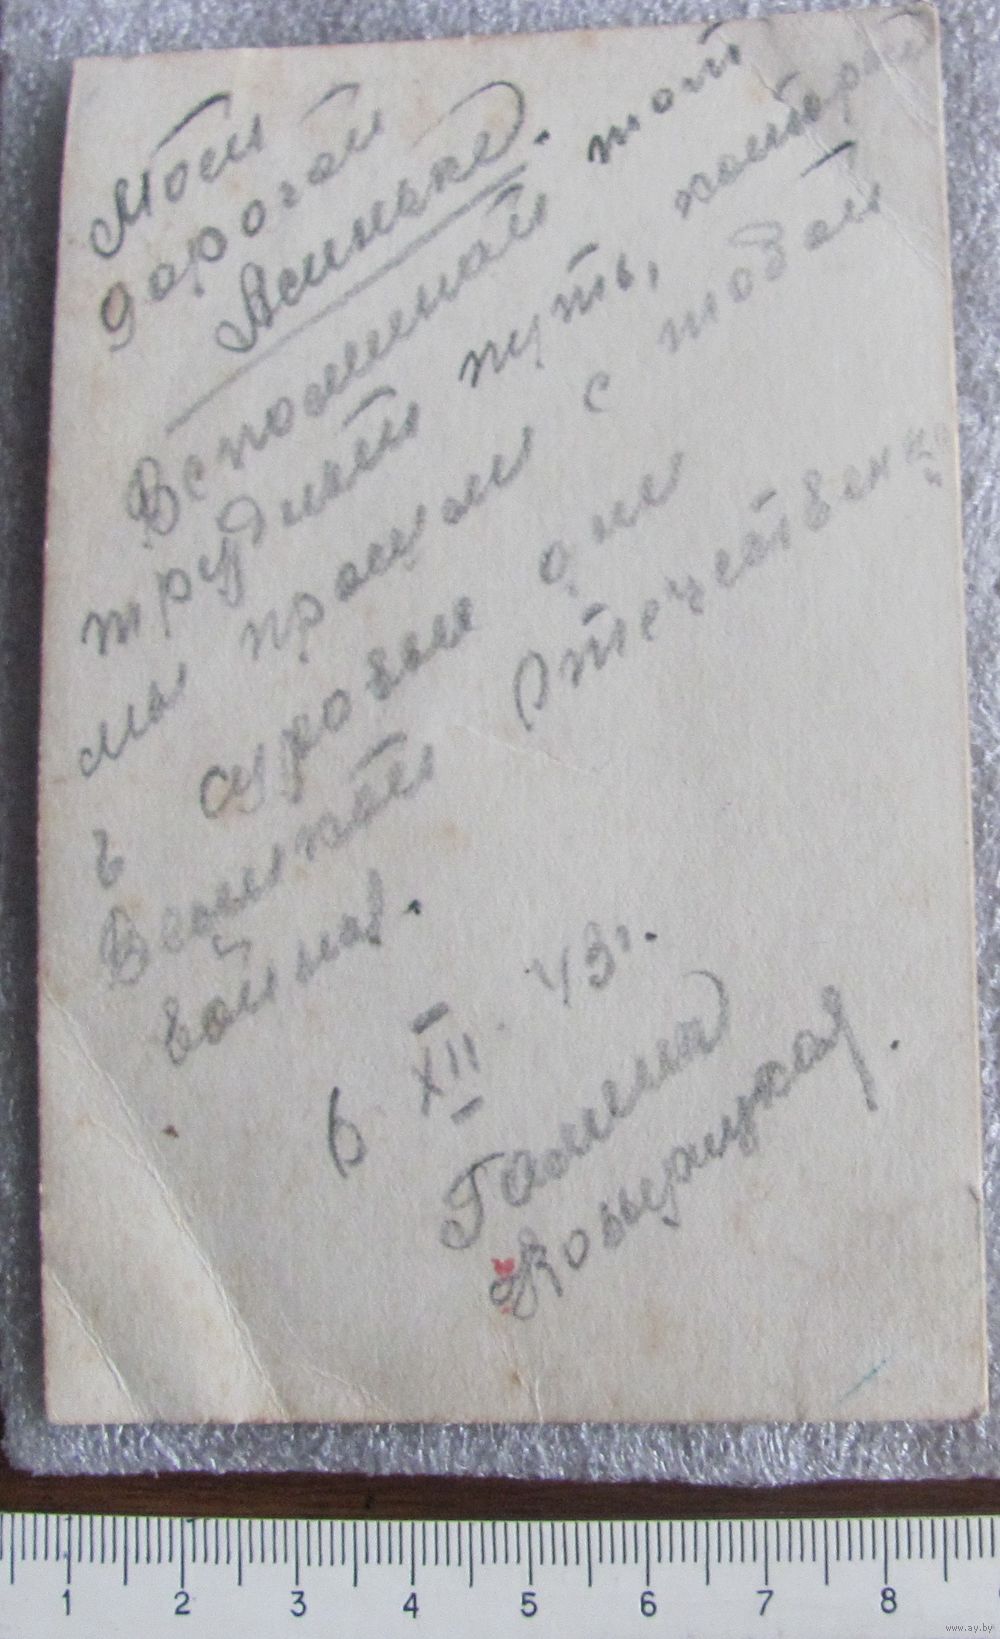 Моей
дорогой
Асеньке.
Вспоминай тот
трудный путь, который
мы прошли с тобой
в суровые дни
Великой Отечественной
войны.
6 XII 43 г.
Галина
1 2 3 4 5 6 7 8
www.ay.by